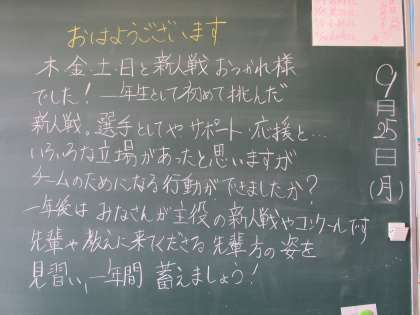 おはようございます
木金土日と新人戦おつかれ様
でした！一年生として初めて挑んだ
新人戦。選手としてやサポート・応援と…
いろいろな立場があったと思いますが
チームのためになる行動ができましたか？
一年後はみなさんが主役の新人戦やコンクールです
先輩や教えに来てくださる先輩方の姿を
見習い、一年間蓄えましょう！
9月25日(月)